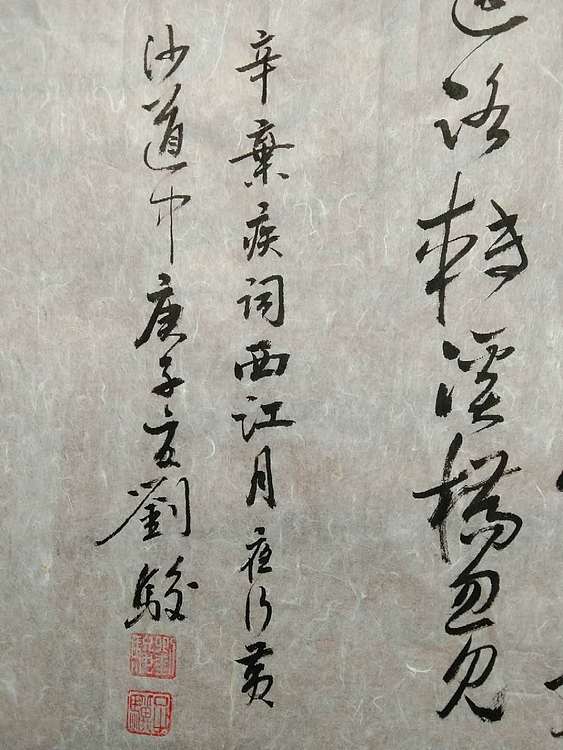 路转溪橋忽见
辛棄疾词西江月夜行黄
沙道中庚子夏劉駿